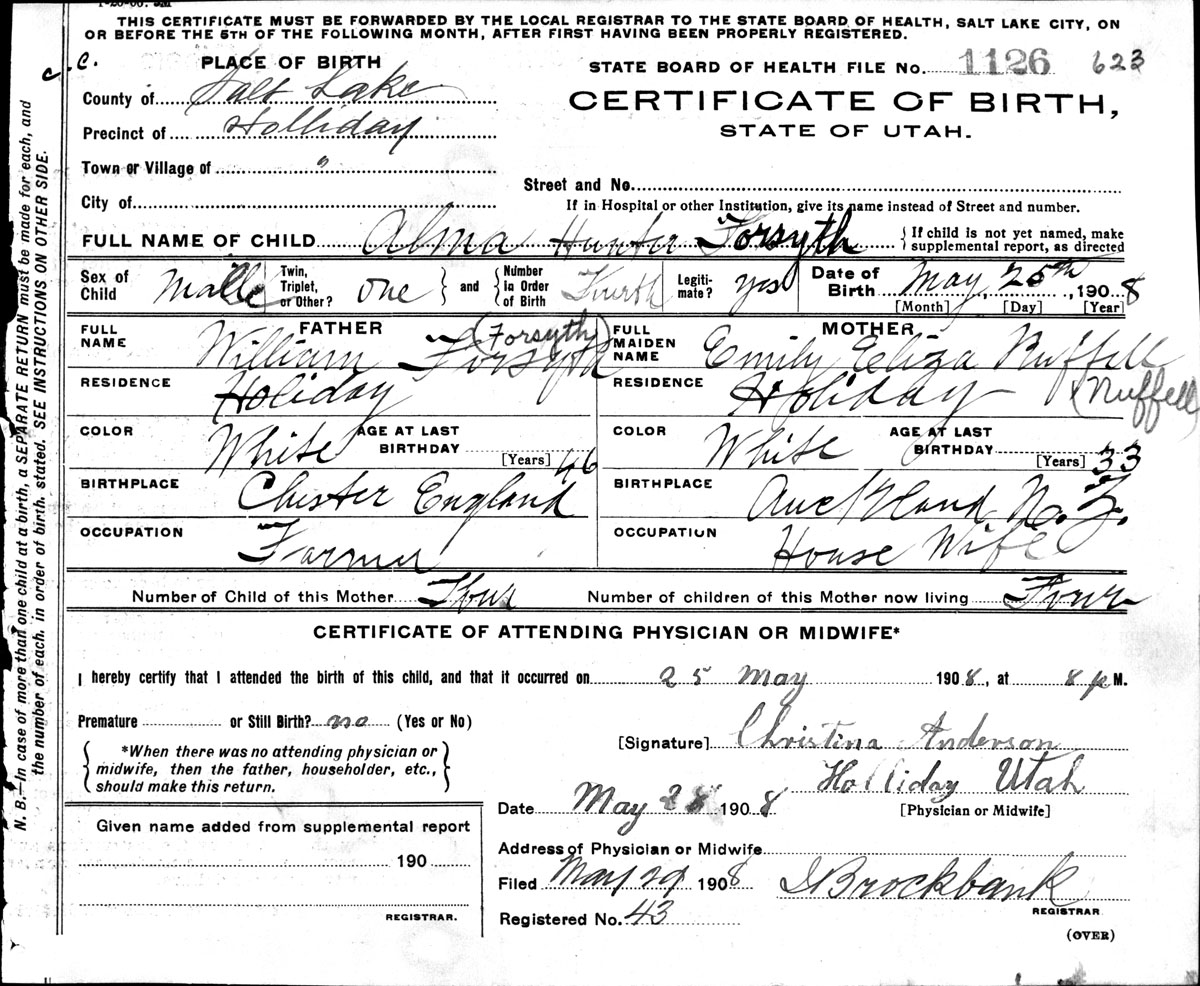 THIS CERTIFICATE MUST BE FORWARDED BY THE LOCAL REGISTRAR TO THE STATE BOARD OF HEALTH, SALT LAKE CITY, ON
OR BEFORE THE 5TH OF THE FOLLOWING MONTH, AFTER FIRST HAVING BEEN PROPERLY REGISTERED.
N. B.—In case of more than one child at a birth, a SEPARATE RETURN must be made for each, and
the number of each, in order of birth, stated. SEE INSTRUCTIONS ON OTHER SIDE.
c. c.
PLACE OF BIRTH
STATE BOARD OF HEALTH FILE No. 1126 623
County of Salt Lake
CERTIFICATE OF BIRTH,
Precinct of Holliday
STATE OF UTAH.
Town or Village of "
Street and No.
City of
If in Hospital or other Institution, give its name instead of Street and number.
FULL NAME OF CHILD Alma Hunter Forsyth { If child is not yet named, make
supplemental report, as directed
Sex of Child Malle Twin, Triplet, or Other? one } and { Number in Order of Birth Fourth Legitimate? yes Date of Birth May, 25th, 1908
[Month] [Day] [Year]
FATHER MOTHER
(Forsyth)
FULL NAME William Forsyth FULL MAIDEN NAME Emily Eliza Buffell
RESIDENCE Holiday RESIDENCE Holiday (Nuffell)
COLOR White AGE AT LAST BIRTHDAY 46 [Years] COLOR White AGE AT LAST BIRTHDAY 33 [Years]
BIRTHPLACE Chester England BIRTHPLACE Auckland N. Z.
OCCUPATION Farmer OCCUPATION House Wife
Number of Child of this Mother Four Number of children of this Mother now living Four
CERTIFICATE OF ATTENDING PHYSICIAN OR MIDWIFE*
I hereby certify that I attended the birth of this child, and that it occurred on 25 May 1908, at 8 p M.
Premature or Still Birth? no (Yes or No)
[Signature] Christina Anderson
{ *When there was no attending physician or
midwife, then the father, householder, etc.,
should make this return. }
Holliday Utah
Date May 28 1908 [Physician or Midwife]
Given name added from supplemental report
190
REGISTRAR.
Address of Physician or Midwife
Filed May 29 1908 Brockbank
REGISTRAR
Registered No. 43
(OVER)